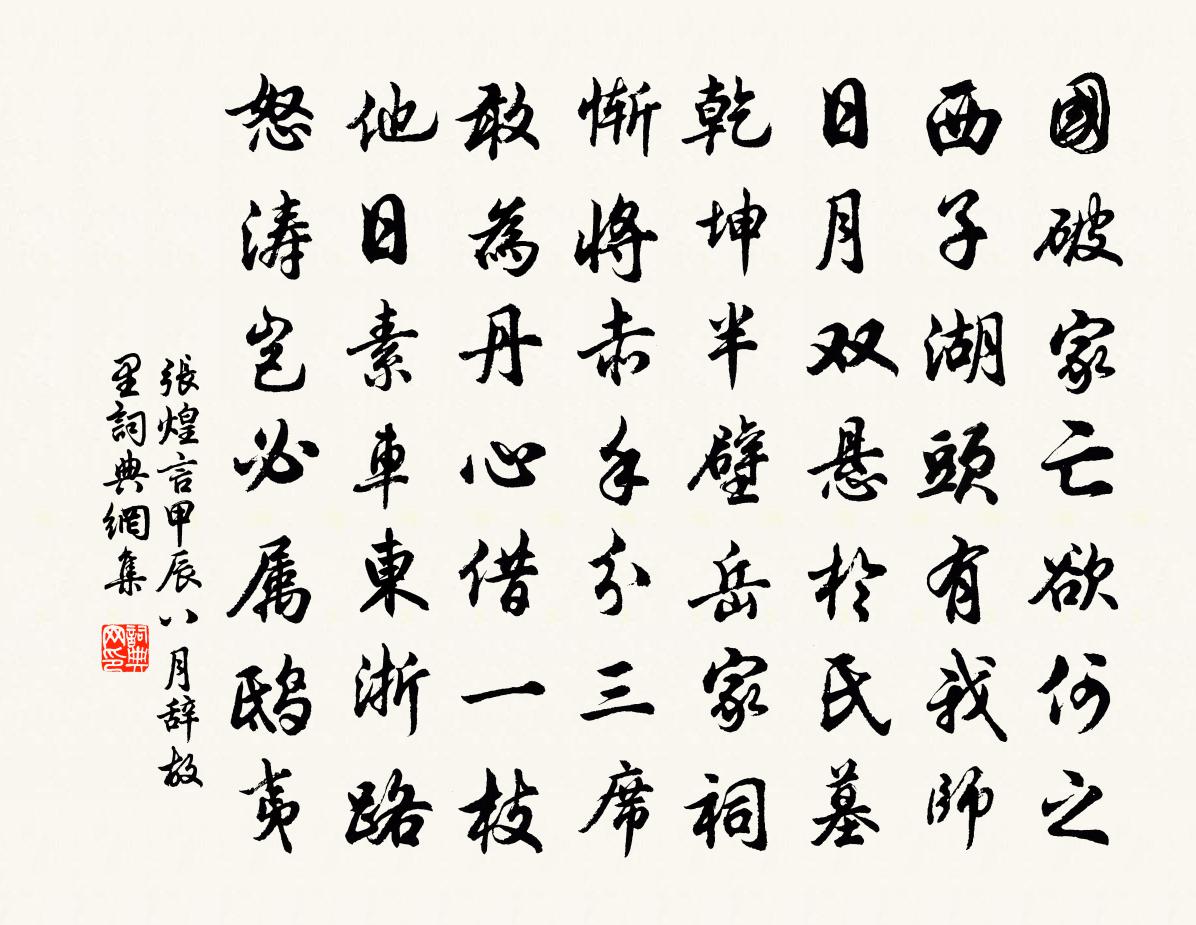 國破家亡欲何之
西子湖頭有我師
日月双悬於氏墓
乾坤半壁岳家祠
惭將赤手分三席
敢為丹心借一枝
他日素車東浙路
怒涛岂必属鸱夷
張煌言甲辰八月辞故
里詞典網集
詞典网印